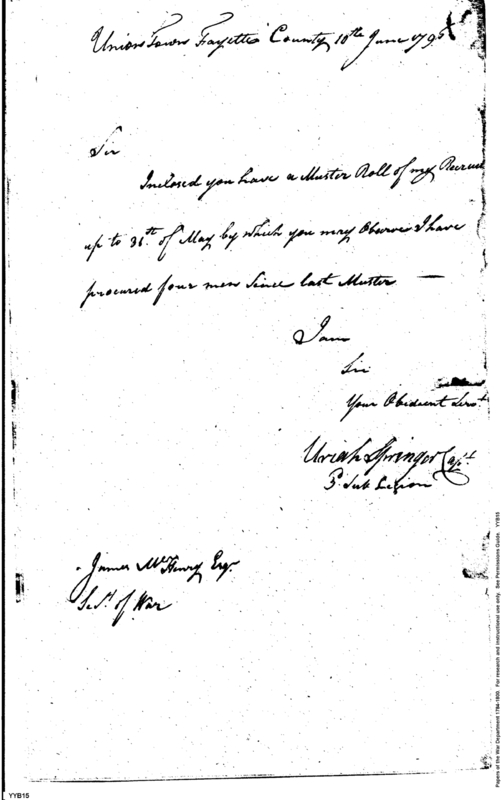 Union Town Fayette County 10th June 1796
Sir
Inclosed you have a Muster Roll of my Recruits
up to 31st. of May by which you may Observe I have
procured four men Since last Muster —
I am
Sir
Your Obedient Servt
Uriah Springer Capt.
3d. Sub Legion
James McHenry Esqr
Secy. of War
Papers of the War Department 1784-1800. For research and instructional use only. See Permissions Guide. YYB15
YYB15